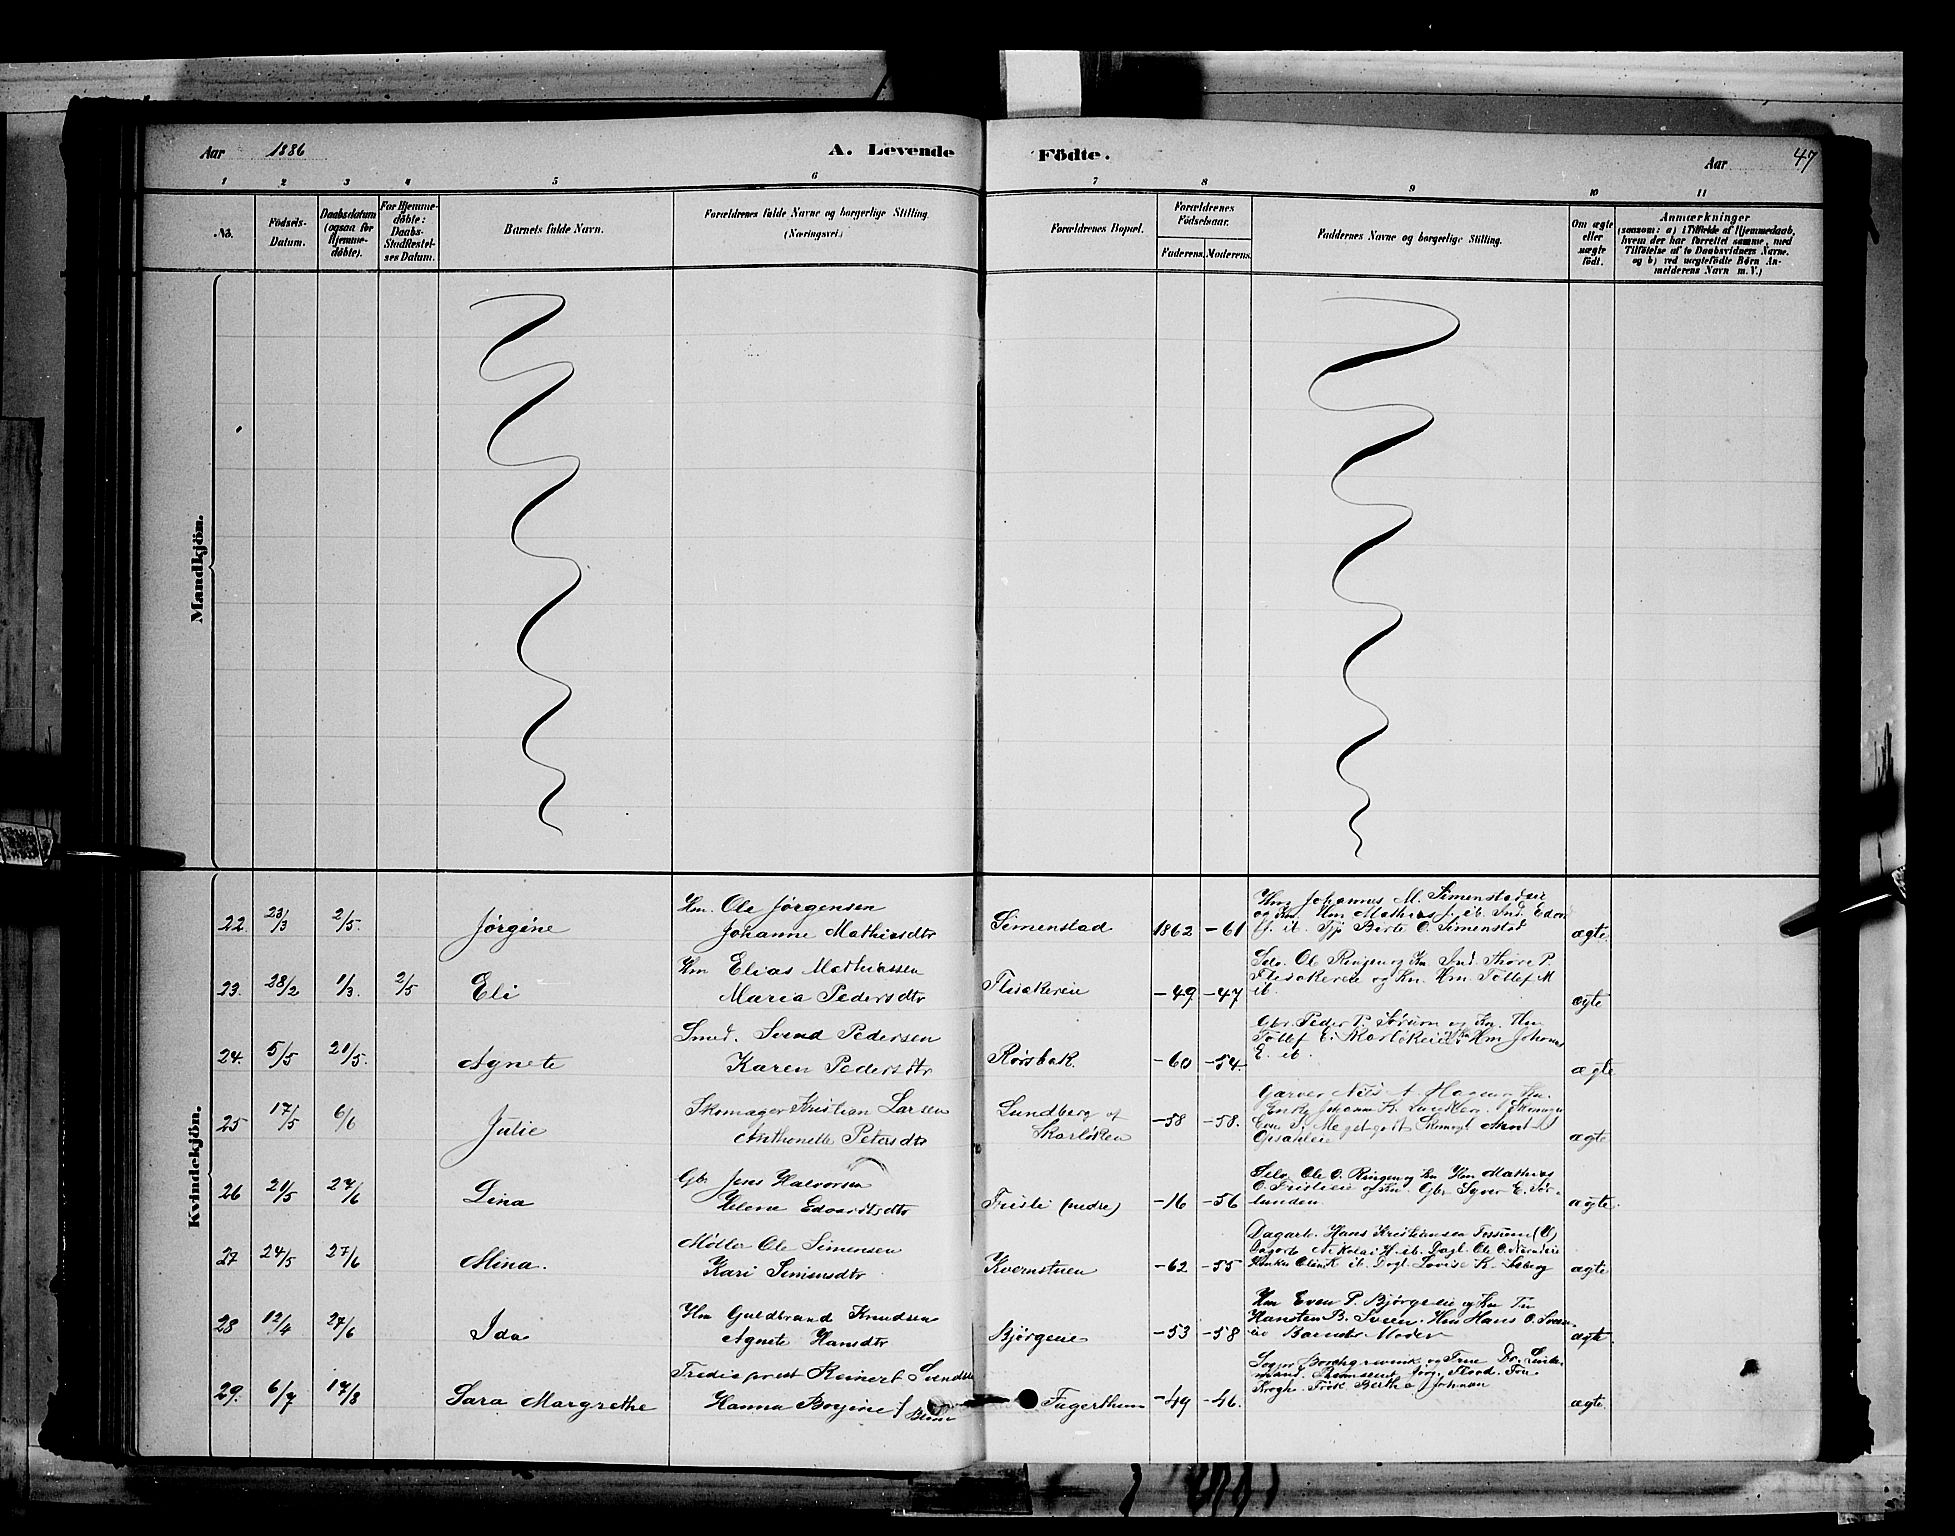 Aar 1886 A. Levende Födte. Aar 47
1 2 3 4 5 6 7 8 9 10 11
No. Födsels-Datum. Daabsdatum (ogsaa for Hjemme-döbte). For Hjemme-döbte: Daabs-Stadfæstel-ses Datum. Barnets fulde Navn. Forældrenes fulde Navne og borgerlige Stilling. (Næringsvei.) Forældrenes Bopæl. Forældrenes Födselsaar. Faderens. Moderens. Faddernes Navne og borgerlige Stilling. Om ægte eller uægte födt. Anmærkninger (saasom: a) i Tilfælde af Hjemmedaab, hvem der har forrettet samme, med Tilföielse af to Daabsvidners Navne. og b) ved uægtefödte Börn An-melderens Navn m. V.)
Mandkjön.
Kvindekjön.
22 23/3 2/5. Jørgine Hm. Ole Jørgensen
Johanne Mathiasdtr Simenstad 1862 -61 ægte
Johannes M. Simenstadeie
Hm Mathias J. ib.
ib. Berte O. Simenstad
23. 28/2 1/3. 2/5 Eli Hm Elias Mathiassen
Maria Pedersdtr -49 -47 ægte
Selv. Ole Ringen og Kn. Ind. Thore P.
og Kn. Hm. Tollef M
ib.
24. 5/5 21/5. Agnete Smed. Svend Pedersen
Karen Pedersdtr Rørsbak. -60 -54. ægte
Gbr. Peder P. Sørum og Kn. Hm
Tollef E. Skarløkeie Hm Johannes
E. ib.
25 17/5 6/6 Julie Skomager Kristian Larsen
Anthonette Petersdtr Lundberg af
Skarløken -58 -58. ægte
Garver Nils A. Haugen
Enke Johanne
Opsahleie
26 21/5 27/6 Lina Gbr Jens Halvorsen
Helene Edvardsdtr Friisli (nedre) -16 -56 ægte.
Selv. Ole O. Ringen og Kn Hm Mathias
O. Friislieie og Kn. Gbr Syver E. Sør-
lunden.
27 24/5 27/6 Mina. Møller Ole Simensen
Kari Simensdtr Kvernstuen -62 -55 ægte
Dagarb. Hans Kristiansen Tossum
Dagarb Nikolai H. ib. Dagl. Ole O.
ib. Dagl. Lovise K.
28 12/4 27/6 Ida Hm Guldbrand Knudsen
Agnete Hansdtr Bjørgeie -53 -58 ægte.
Hm Even P. Bjørgeie og Kn
Hansten B. Sveen. Hm Hans O. Sveen-
eie Barnets Moder
29. 6/7 17/8 Sara Margrethe Trediepræst Reinert Svendsen
Hanna Bergine f. Fagerthun -49 -46. ægte.
Sogpr Borchgrevink og Frue Dr.
Krogh. Frøk Bertha Johnsen